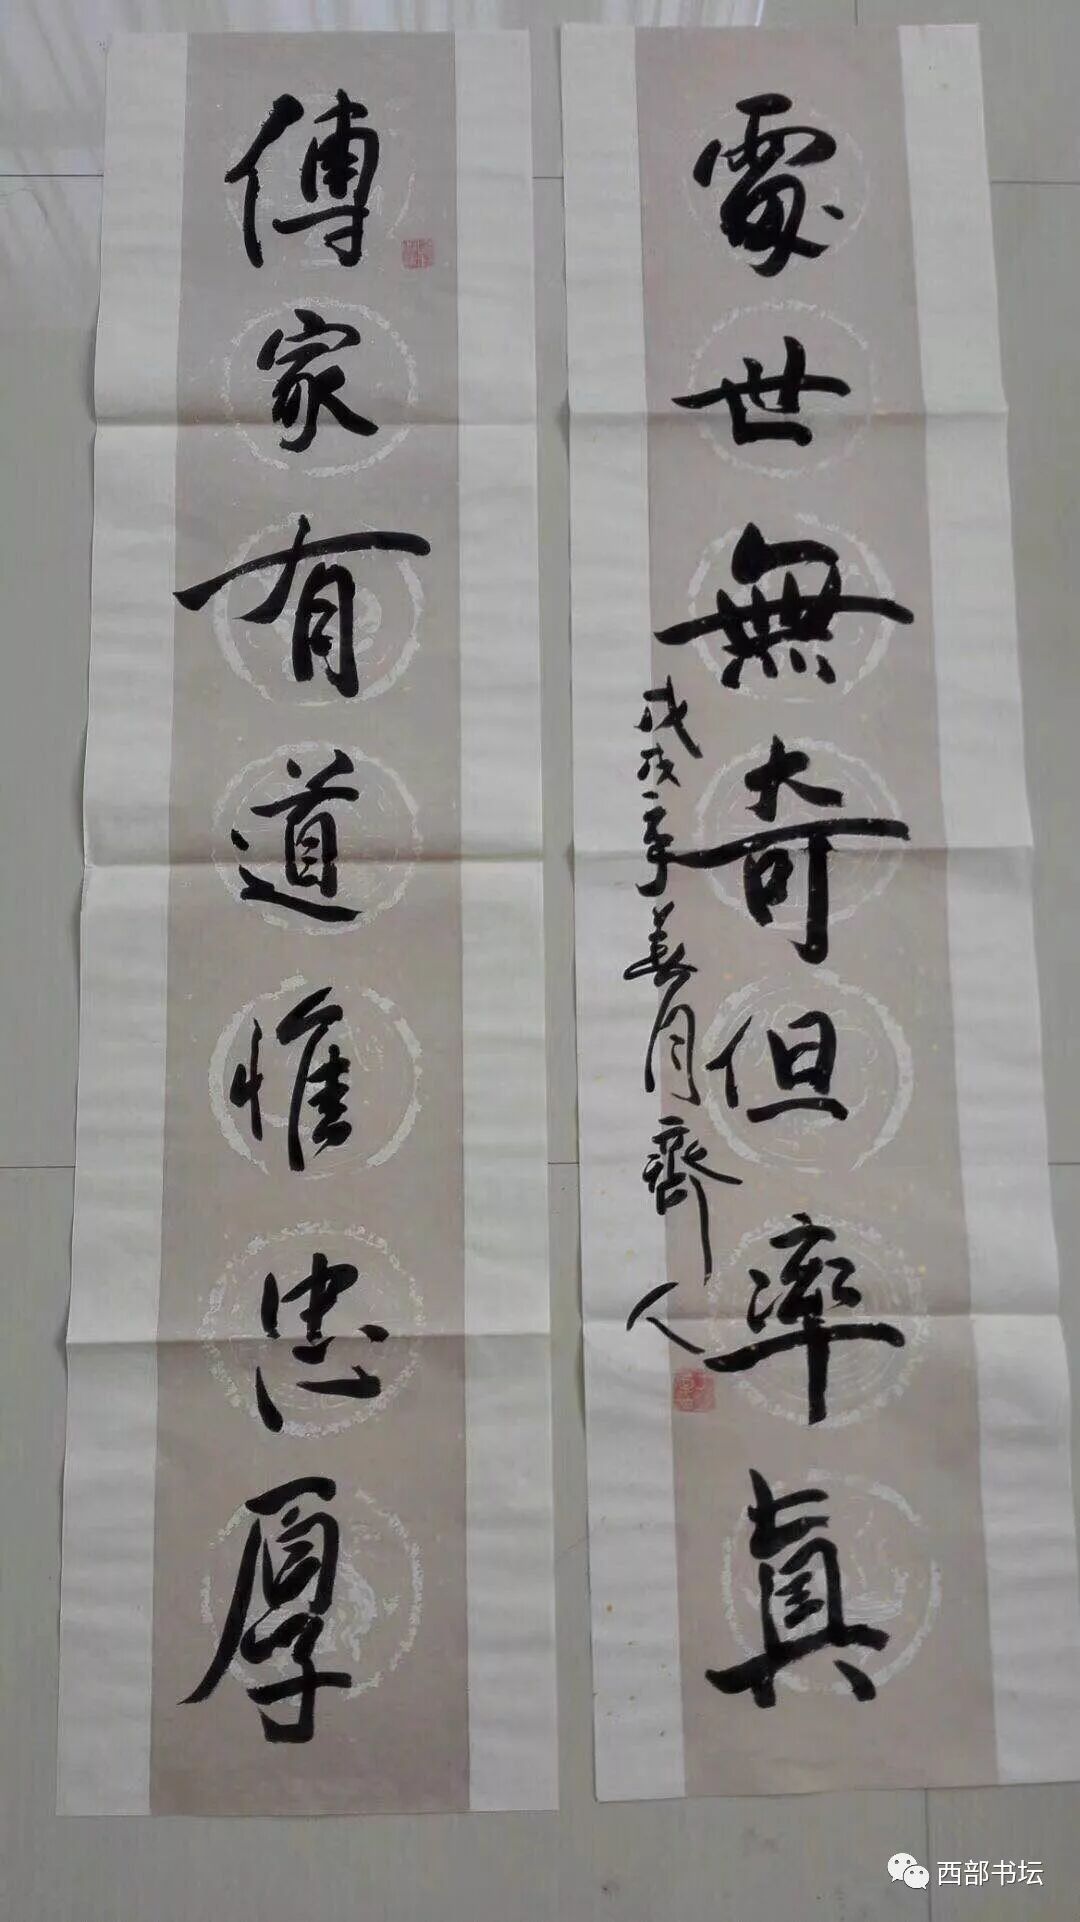 傳家有道惟忠厚
處世無奇但率真
戊戌年美月齋人
西部书坛